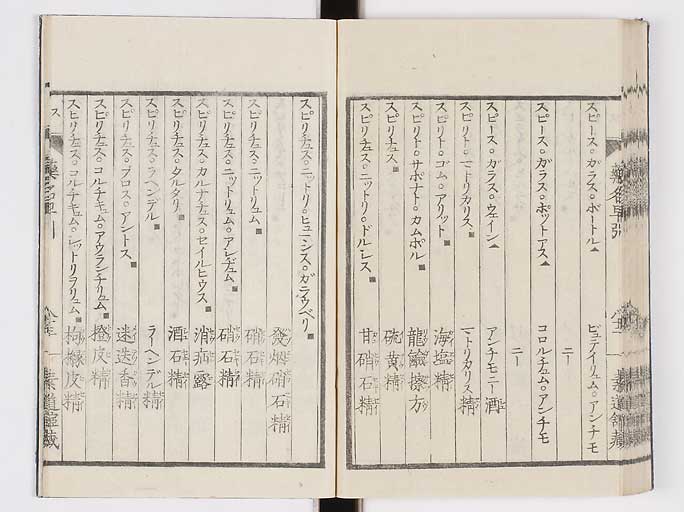 スピース。ガラス。ボートル▲ ビュテイリュム。アンチモニー
スピース。ガラス。ポットアス▲ コロルチュム。アンチモニー
スピース。ガラス。ウェイン▲ アンチモニー酒
スピリト。マトリカリス■ マトリカリス精
スピリト。ゴム。アリット■ 海塩精
スピリト。サボナト。カムポル■ 龍鹸擦方
スピリチュス■ 硫黄精
スピリチュス。ニットリ。ドルシス■ 甘硝石精
スピリチュス。ニットリ。ヒューシス。ガラウベリ■ 發烟硝石精
スピリチュス。ニットリュム■ 硝石精
スピリチュス。ニットリュム。アシデュム■ 硝石精
スピリチュス。カルナチュス。セイルヒウス■
スピリチュス。タルタリ■ 酒石精
スピリチュス。ラヘンデル■ ライヘンデル精
スピリチュス。プロス。アントス■ 迷迭香精
スピリチュス。コルチキュム。アウランチリュム■ 橙皮精
スピリチュス。コルチキュム。シットリヲリュム■ 枸櫞皮精
ス